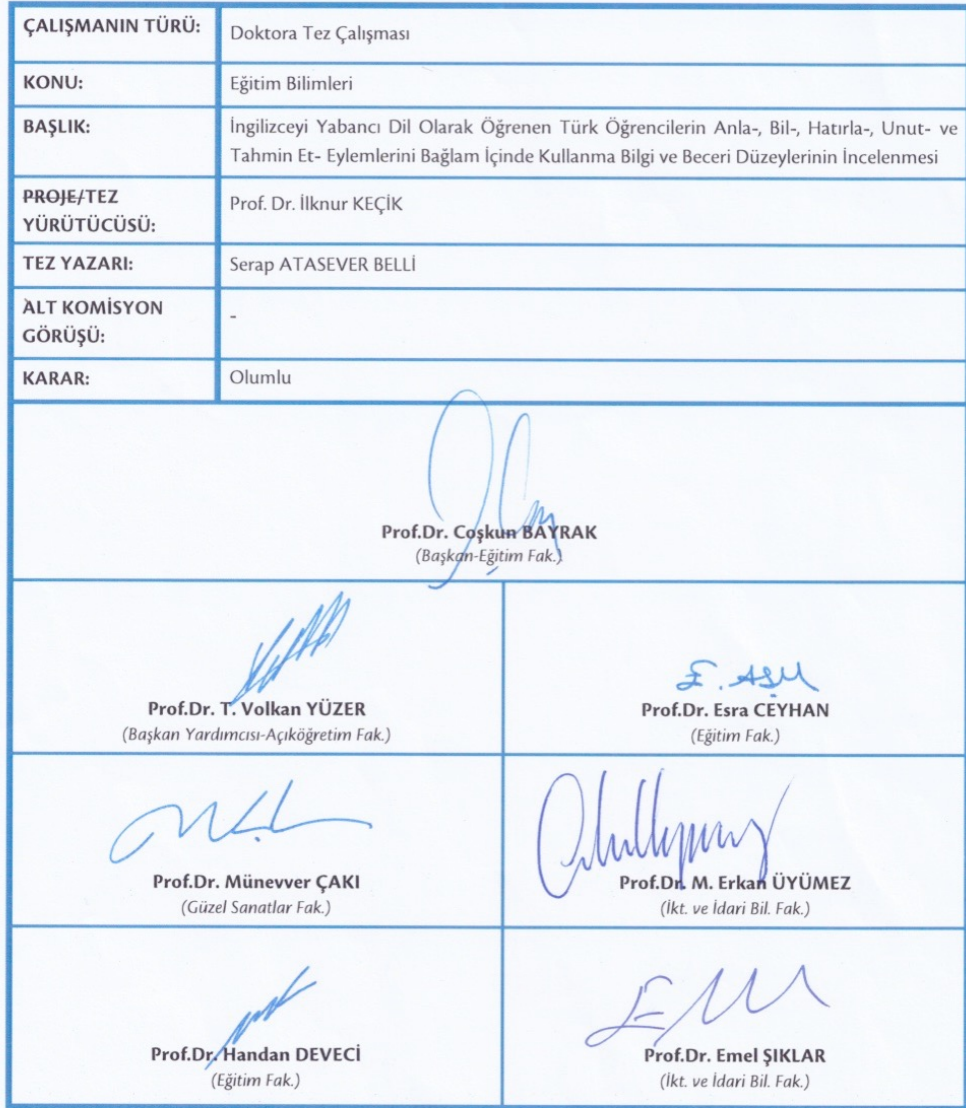 ÇALIŞMANIN TÜRÜ: Doktora Tez Çalışması
KONU: Eğitim Bilimleri
BAŞLIK: İngilizceyi Yabancı Dil Olarak Öğrenen Türk Öğrencilerin Anla-, Bil-, Hatırla-, Unut- ve
Tahmin Et- Eylemlerini Bağlam İçinde Kullanma Bilgi ve Beceri Düzeylerinin İncelenmesi
PROJE/TEZ
YÜRÜTÜCÜSÜ: Prof. Dr. İlknur KEÇİK
TEZ YAZARI: Serap ATASEVER BELLİ
ALT KOMİSYON
GÖRÜŞÜ: -
KARAR: Olumlu
Prof.Dr. Coşkun BAYRAK
(Başkan-Eğitim Fak.)
Prof.Dr. T. Volkan YÜZER
(Başkan Yardımcısı-Açıköğretim Fak.)
Prof.Dr. Esra CEYHAN
(Eğitim Fak.)
Prof.Dr. Münevver ÇAKI
(Güzel Sanatlar Fak.)
Prof.Dr. M. Erkan ÜYÜMEZ
(İkt. ve İdari Bil. Fak.)
Prof.Dr. Handan DEVECİ
(Eğitim Fak.)
Prof.Dr. Emel ŞIKLAR
(İkt. ve İdari Bil. Fak.)